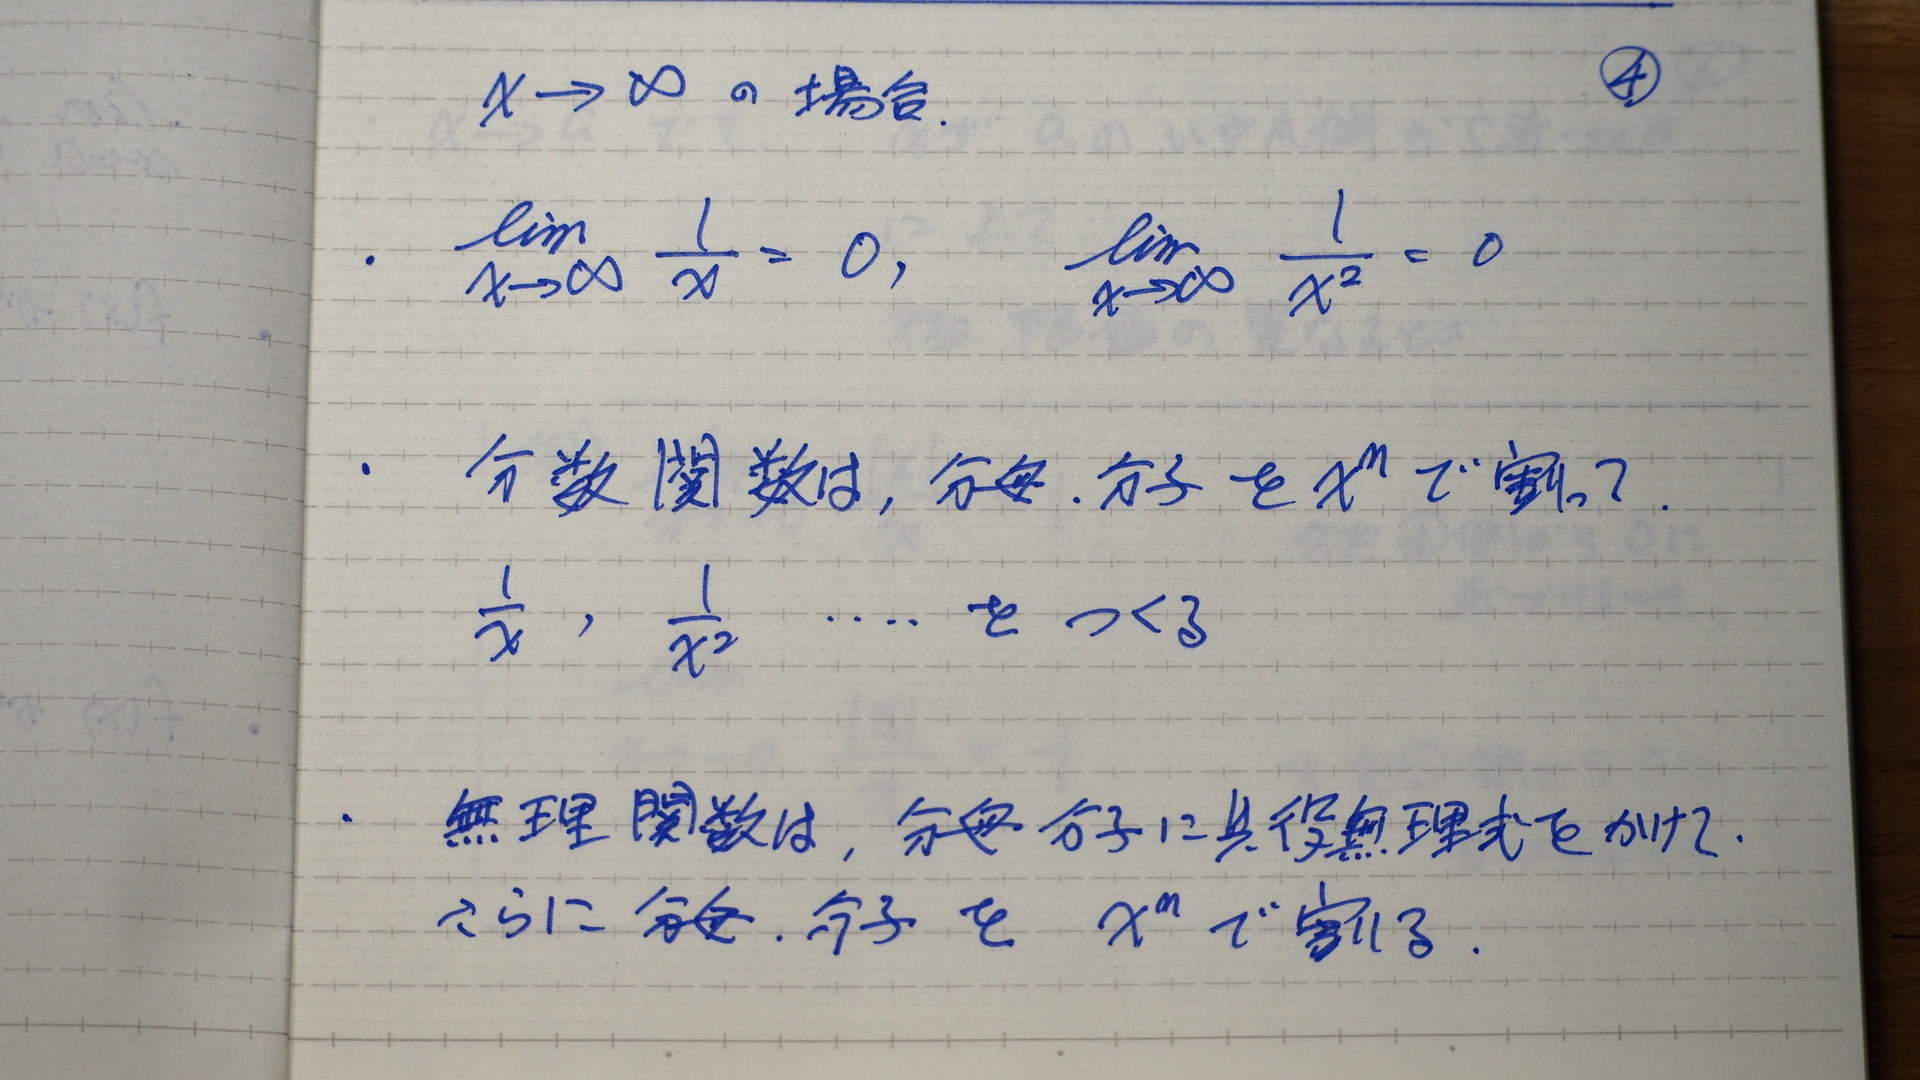 ④
x→∞ の 場合.
・ lim x→∞ 1/x = 0, lim x→∞ 1/x² = 0
・ 分数関数は, 分母.分子を xⁿ で割って.
1/x , 1/x² ····· を つくる
・ 無理関数は, 分母 分子に共役無理式をかけて.
さらに 分母.分子 を xⁿ で割る.